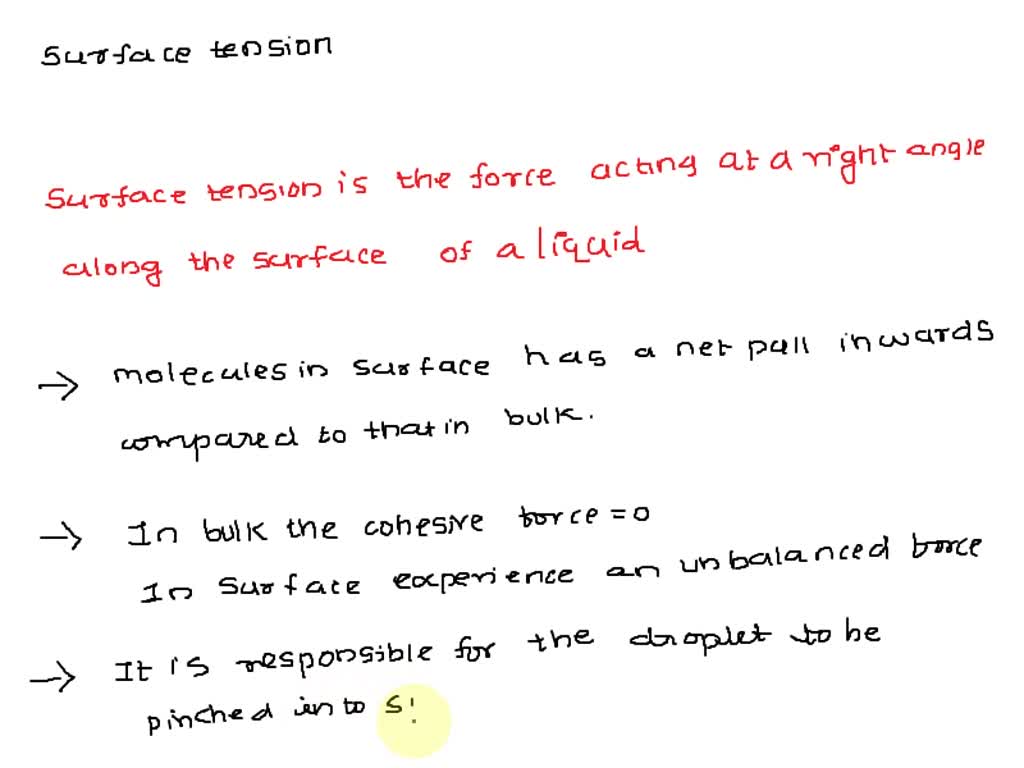 Surface tension
Surface tension is the force acting at a right angle
along the surface of a liquid
→ molecules in surface has a net pull inwards
compared to that in bulk.
→ In bulk the cohesive force = 0
In surface experience an unbalanced force
→ It is responsible for the droplet to be
pinched into